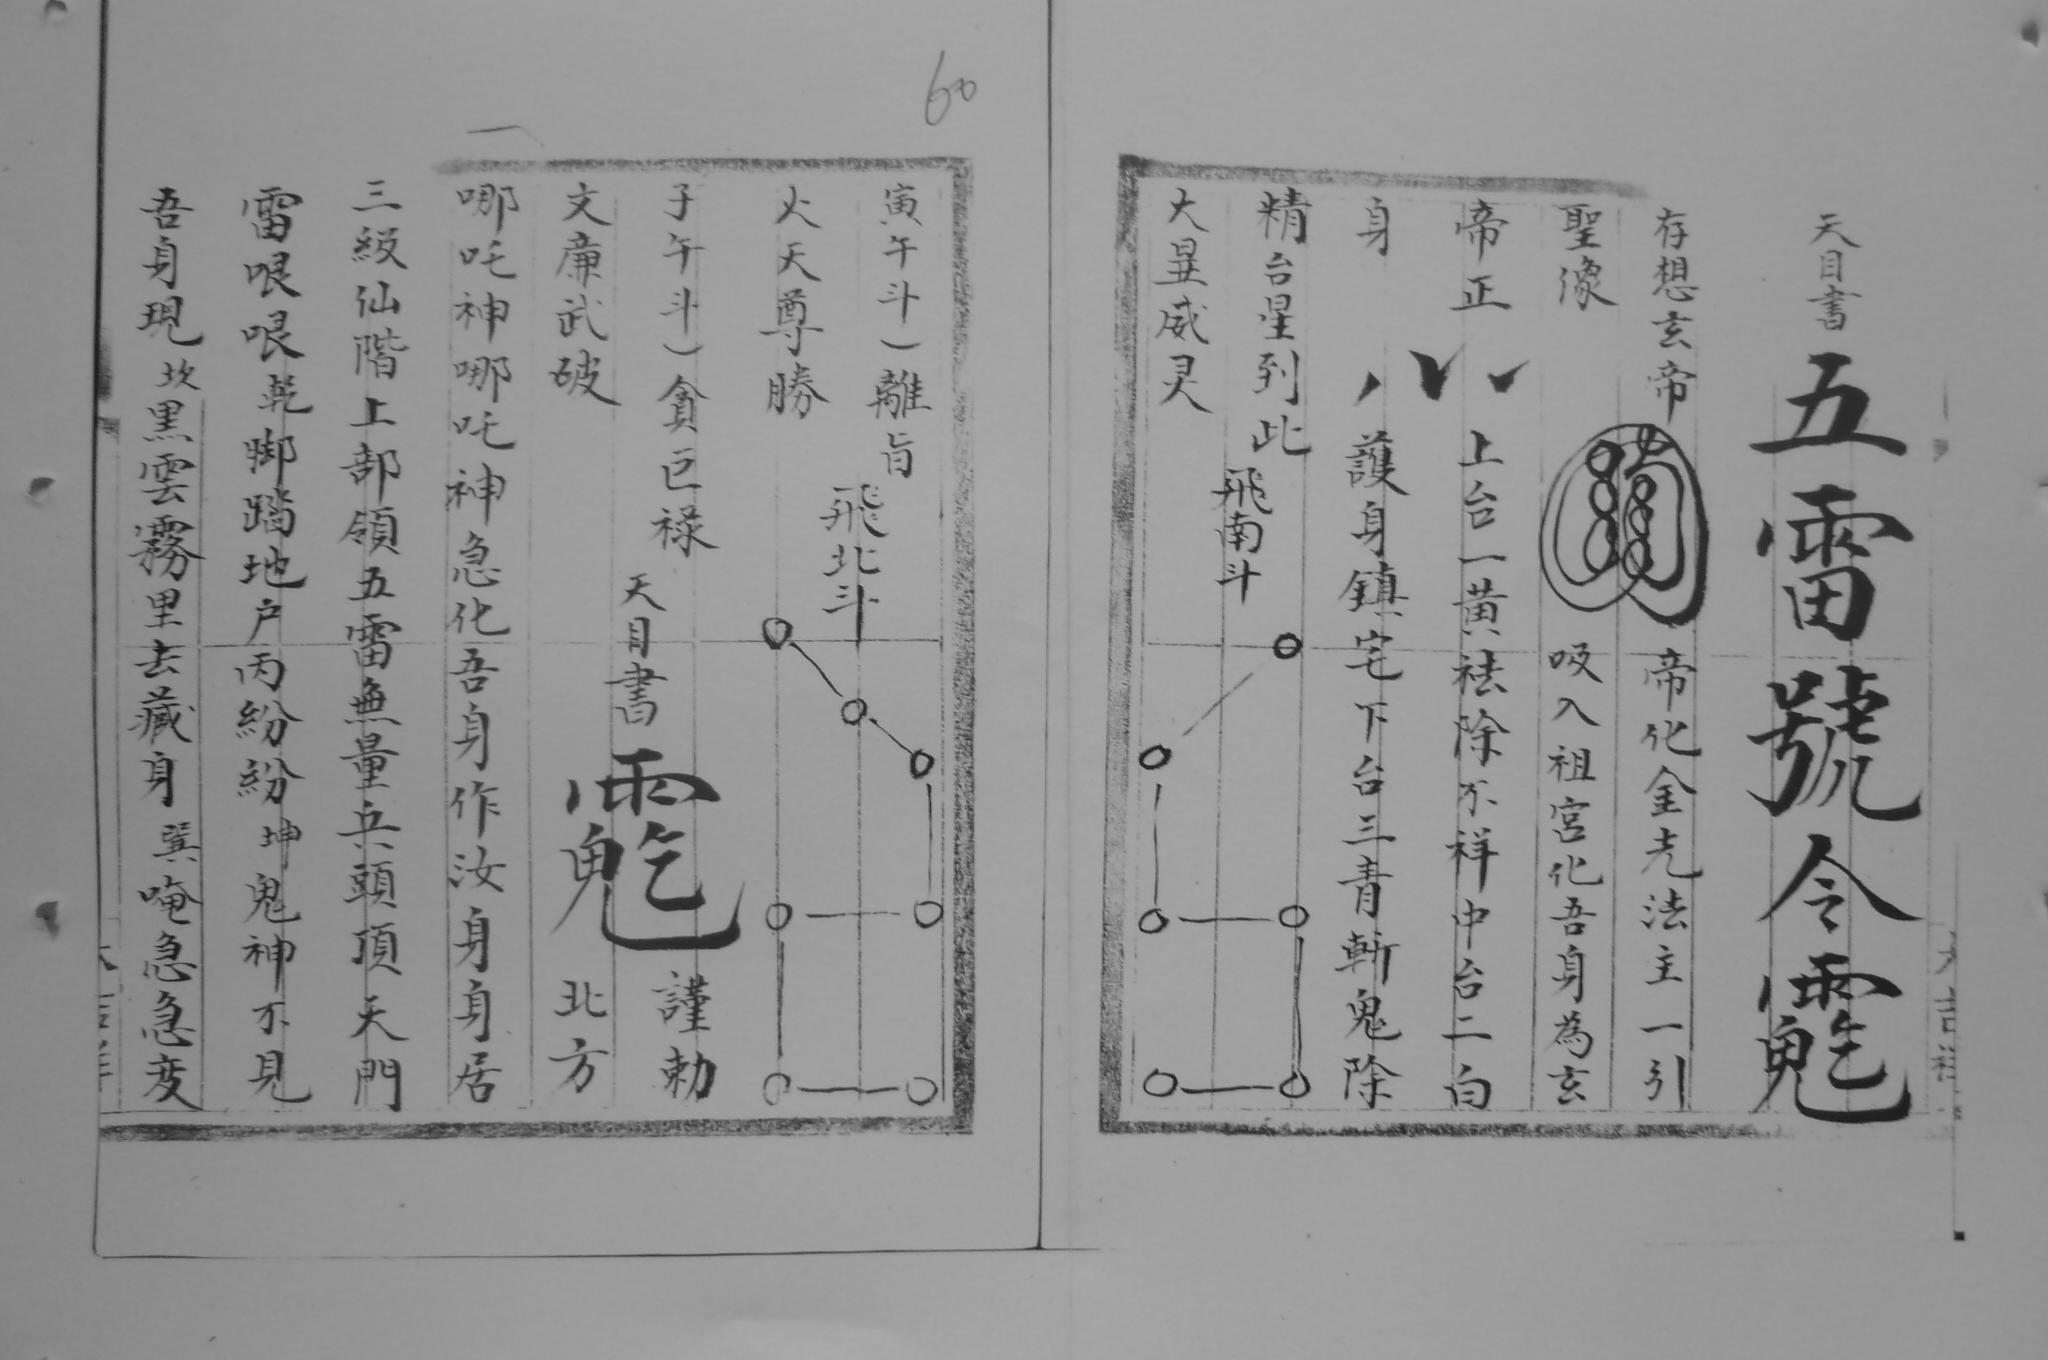 天目書 五雷號令䨻
存想玄帝 帝化金光法主一引
聖像 吸入祖宮化吾身為玄
帝正 上台一黃祛除不祥中台二白
身 護身鎮宅下台三青斬鬼除
精台星到此
飛南斗
大显威灵
60
寅午斗)離旨
飛北斗
火天尊勝
子午斗)貪巨禄 謹勅
天目書
文廉武破 北方
哪吒神哪吒神急化吾身作汝身身居
三級仙階上部領五雷無量兵頭頂天門
雷哏哏乾脚踏地户丙紛紛坤鬼神不見
吾身現坎黑雲霧里去藏身巽唵急急变